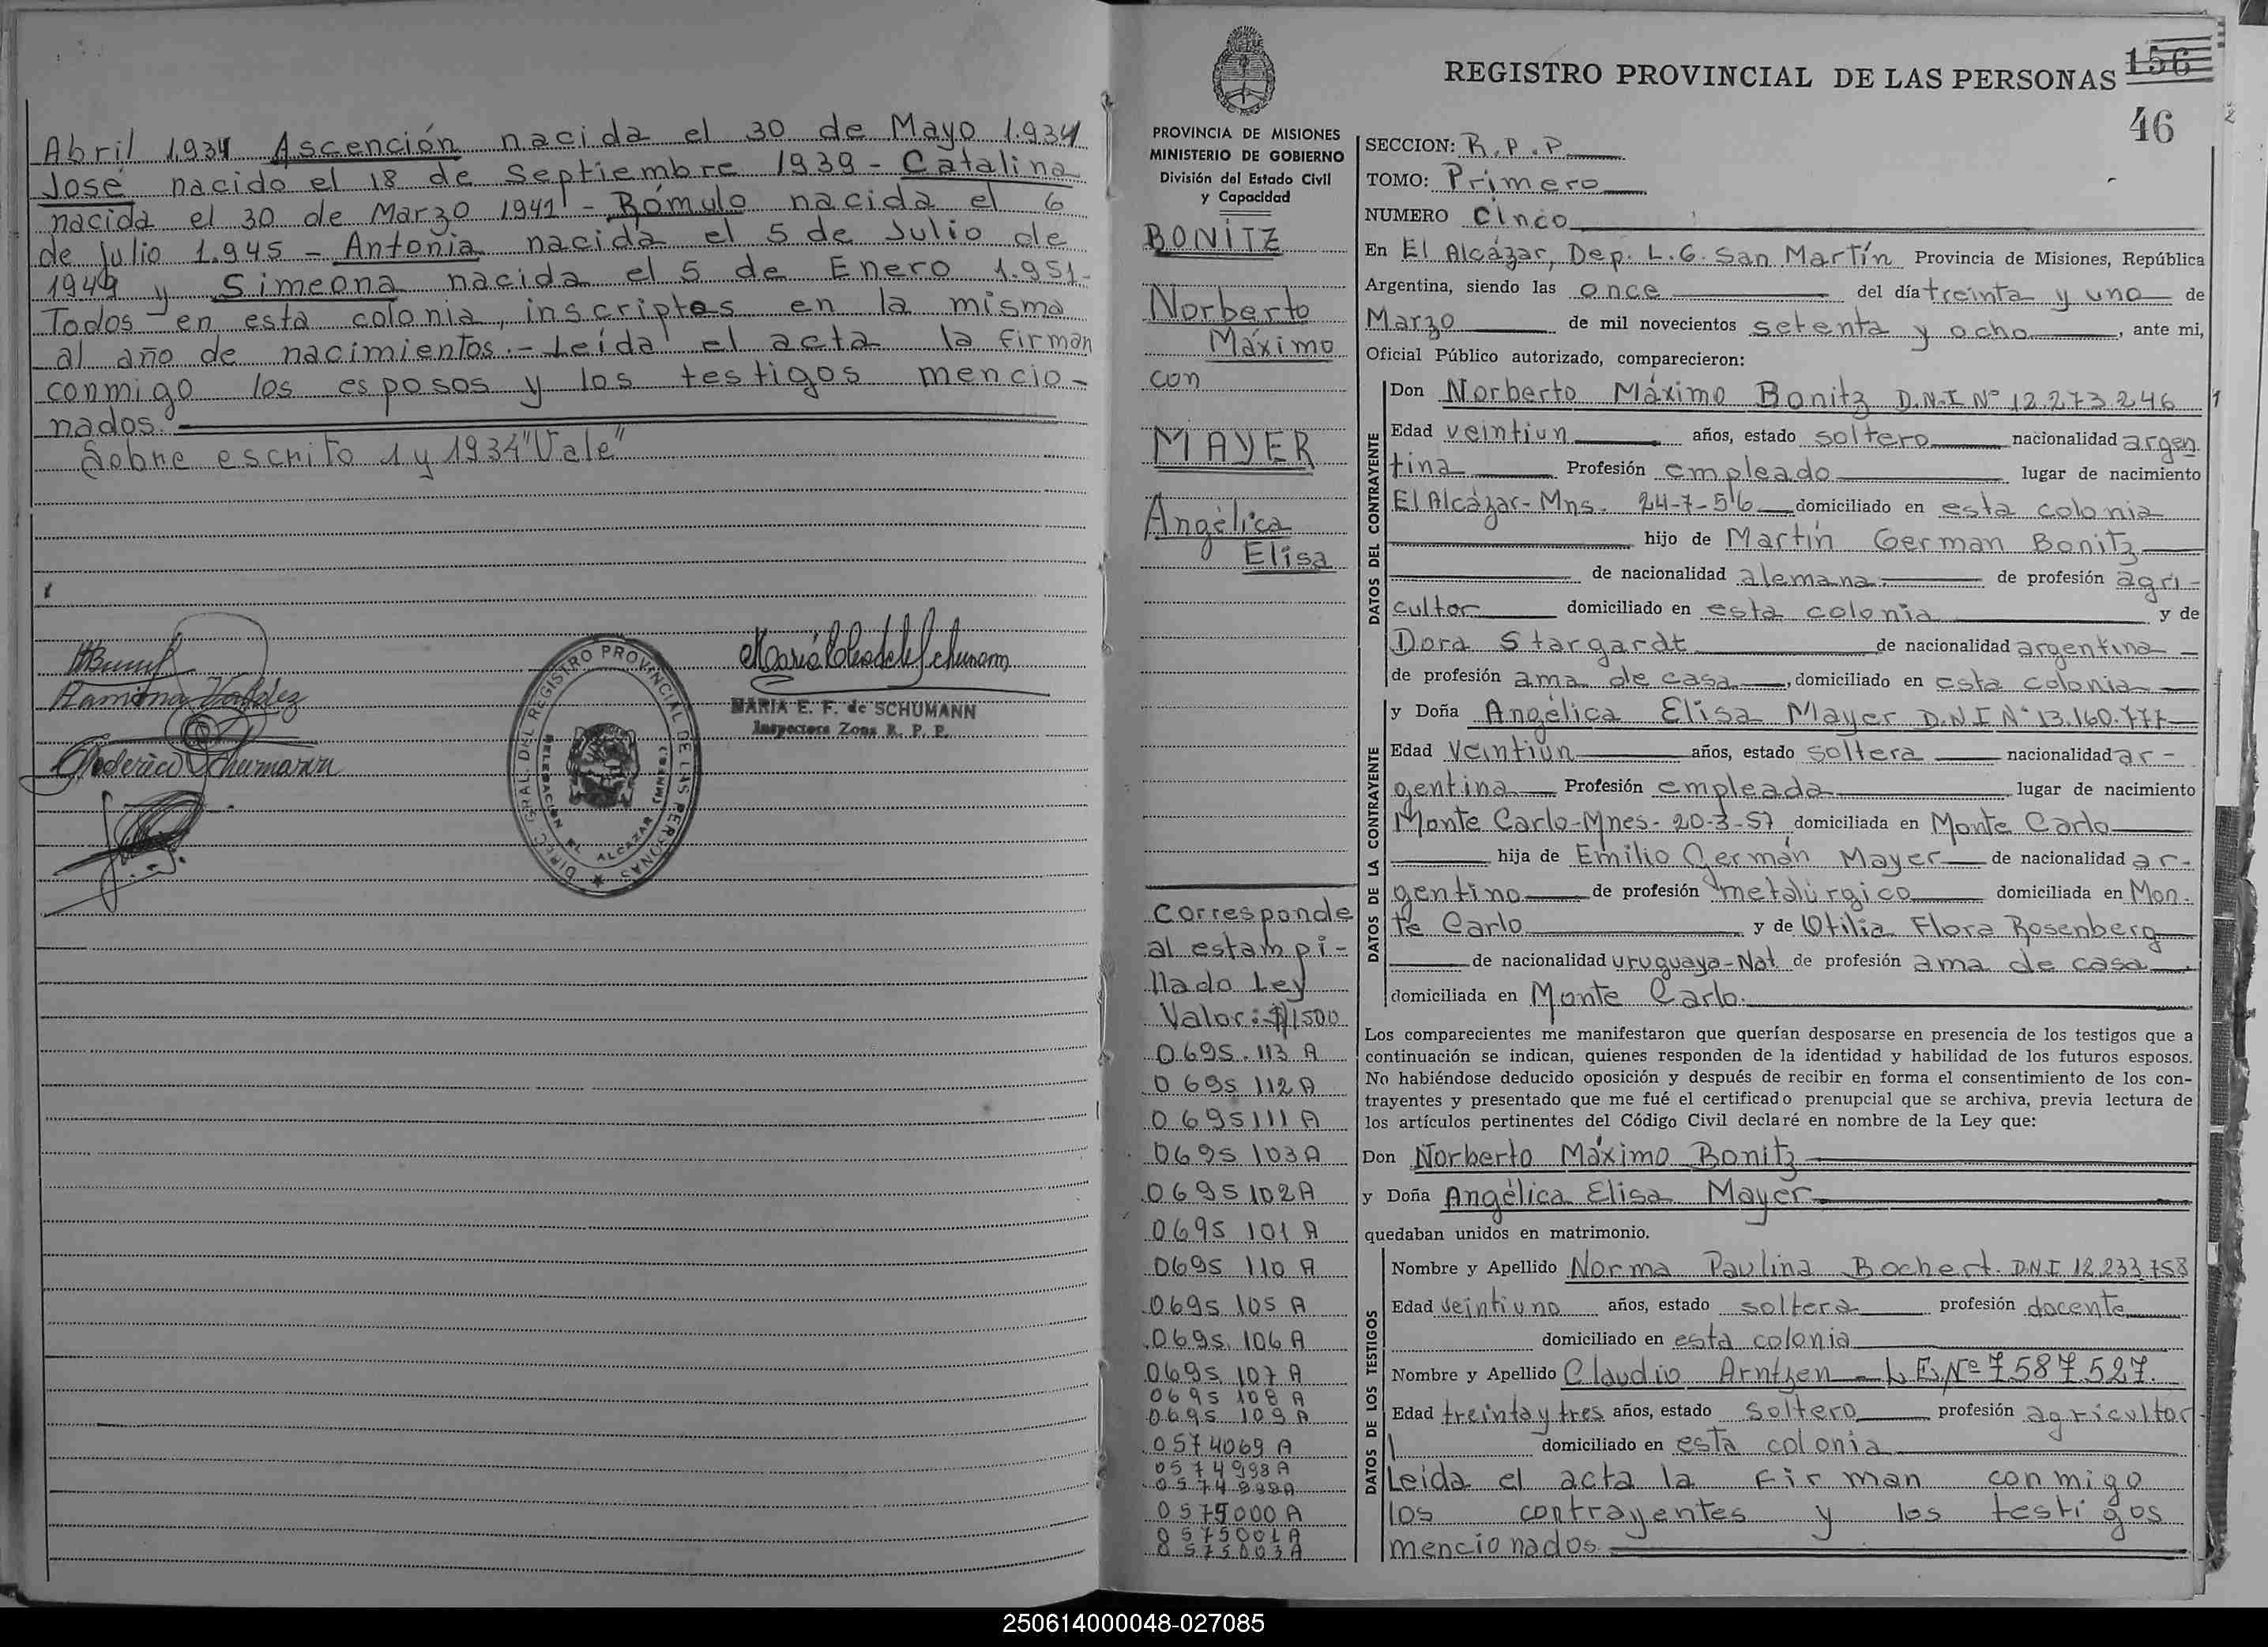 Abril 1.934 Ascención nacida el 30 de Mayo 1.934
José nacido el 18 de Septiembre 1939 - Catalina
nacida el 30 de Marzo 1941 - Rómulo nacida el 6
de Julio 1.945 - Antonia nacida el 5 de Julio de
1949 y Simeona nacida el 5 de Enero 1.951-
Todos en esta colonia, inscriptos en la misma
al año de nacimientos.- Leída el acta la firman
conmigo los esposos y los testigos mencio-
nados.
Sobre escrito 1 y 1934 "Vale"
Ramona Valdez
Federico Schumann
DIREC. GRAL. DEL REGISTRO PROVINCIAL DE LAS PERSONAS
DELEGACIÓN EL ALCAZAR (MNES.)
MARIA E. F. de SCHUMANN
Inspectora Zona R. P. P.
REGISTRO PROVINCIAL DE LAS PERSONAS
156
46
PROVINCIA DE MISIONES
MINISTERIO DE GOBIERNO
División del Estado Civil
y Capacidad
BONITZ
Norberto
Máximo
con
MAYER
Angélica
Elisa
Corresponde
al estampi-
llado Ley
Valor: $ 1500
0695.113 A
0695 112 A
0695111 A
0695 103 A
0695 102 A
0695 101 A
0695 110 A
0695 105 A
0695 106 A
0695 107 A
0695 108 A
0695 109 A
0574069 A
0574998 A
0574999A
0575000 A
0575001A
0575003A
SECCION: R.P.P.
TOMO: Primero
NUMERO Cinco
En El Alcázar, Dep. L.G. San Martín Provincia de Misiones, República
Argentina, siendo las once del día treinta y uno de
Marzo de mil novecientos setenta y ocho, ante mi,
Oficial Público autorizado, comparecieron:
DATOS DEL CONTRAYENTE
Don Norberto Máximo Bonitz D.N.I Nº 12.273.246
Edad veintiun años, estado soltero nacionalidad argen
tina Profesión empleado lugar de nacimiento
El Alcázar-Mns. 24-7-56 domiciliado en esta colonia
hijo de Martín German Bonitz
de nacionalidad alemana de profesión agri-
cultor domiciliado en esta colonia y de
Dora Stargardt de nacionalidad argentina
de profesión ama de casa, domiciliado en esta colonia
DATOS DE LA CONTRAYENTE
y Doña Angélica Elisa Mayer D.N.I Nº 13.160.777
Edad Veintiún años, estado soltera nacionalidad ar-
gentina Profesión empleada lugar de nacimiento
Monte Carlo-Mnes- 20-3-57 domiciliada en Monte Carlo
hija de Emilio Germán Mayer de nacionalidad ar-
gentino de profesión metalúrgico domiciliada en Mon-
te Carlo y de Otilia Flora Rosenberg
de nacionalidad uruguaya-Nat. de profesión ama de casa,
domiciliada en Monte Carlo.
Los comparecientes me manifestaron que querían desposarse en presencia de los testigos que a
continuación se indican, quienes responden de la identidad y habilidad de los futuros esposos.
No habiéndose deducido oposición y después de recibir en forma el consentimiento de los con-
trayentes y presentado que me fué el certificado prenupcial que se archiva, previa lectura de
los artículos pertinentes del Código Civil declaré en nombre de la Ley que:
Don Norberto Máximo Bonitz
y Doña Angélica Elisa Mayer
quedaban unidos en matrimonio.
DATOS DE LOS TESTIGOS
Nombre y Apellido Norma Paulina Bochert. DNI 12.233.758
Edad Veintiuno años, estado soltera profesión docente
domiciliado en esta colonia
Nombre y Apellido Claudio Arntzen - L.E. Nº 7.587.527.
Edad treinta y tres años, estado soltero profesión agricultor
domiciliado en esta colonia
Leída el acta la firman conmigo
los contrayentes y los testigos
mencionados.
250614000048-027085